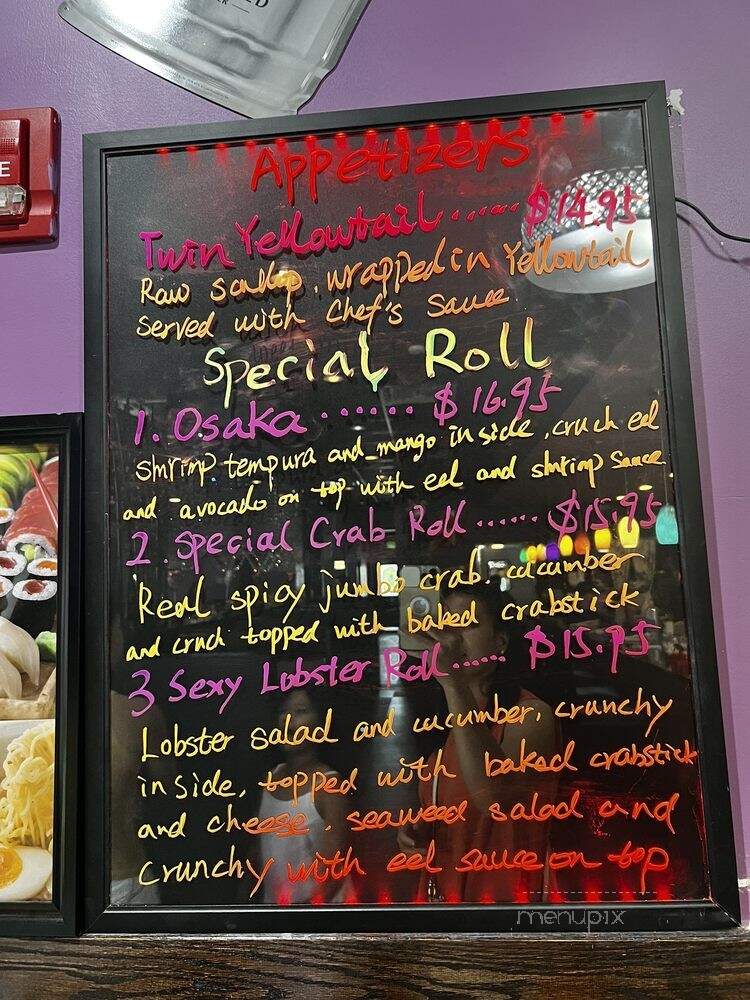 E
Appetizers
Twin Yellowtail ...... $14.95
Raw scallop, wrapped in Yellowtail
served with Chef's Sauce
Special Roll
1. Osaka ...... $16.95
Shrimp tempura and mango inside, cruch eel
and avocado on top with eel and shrimp Sauce
2. Special Crab Roll ...... $15.95
Real spicy jumbo crab, cucumber
and cruch topped with baked crabstick
3 Sexy Lobster Roll ...... $15.95
Lobster salad and cucumber, crunchy
inside, topped with baked crabstick
and cheese, seaweed salad and
crunchy with eel sauce on top
menupix